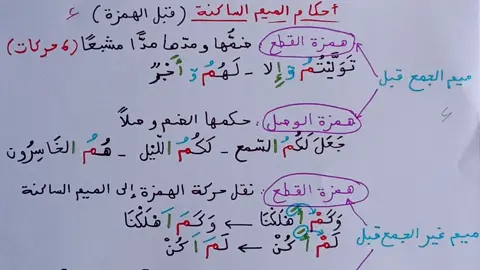 أحكام الميم الساكنة (قبل الهمزة)
همزة القطع: ضمُّها ومدّها مدًّا مشبعًا (6 حركات)
تَوَلَّيْتُمُ وٓ إِلا - لَهُمُ وٓ أَجْرٌ
ميم الجمع قبل
همزة الوصل: حكمها الضم وصلاً
جَعَلَ لَكُمُ السَّمع - لَكُمُ اللَّيْل - هُمُ الخَاسِرُون
همزة القطع: نقل حركة الهمزة إلى الميم الساكنة
وَكَمْ أَهْلَكْنَا ← وَكَمَ اَهْلَكْنَا
ميم غير الجمع قبل
لَمْ أَكُنْ ← لَمَ اَكُنْ